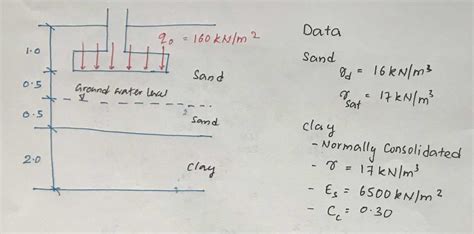 q₀ = 160 kN/m²
1.0
Sand
0.5
Ground water level
0.5
Sand
2.0
Clay
Data
Sand
γd = 16 kN/m³
γsat = 17 kN/m³
Clay
- Normally Consolidated
- γ = 17 kN/m³
- Es = 6500 kN/m²
- Cc = 0.30